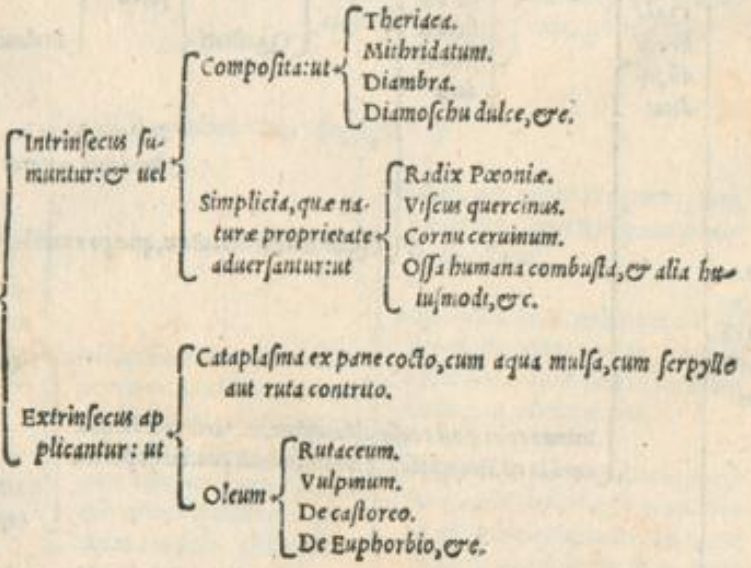 Intrinſecus ſu-
muntur: & uel
Compoſita: ut
Theriaca.
Mithridatum.
Diambra.
Diamoſchu dulce, &c.
Simplicia, quæ na-
turæ proprietate
aduerſantur: ut
Radix Pœoniæ.
Viſcus quercinus.
Cornu ceruinum.
Oſſa humana combuſta, & alia hu-
iuſmodi, &c.
Extrinſecus ap
plicantur: ut
Cataplaſma ex pane cocto, cum aqua mulſa, cum ſerpyllo
aut ruta contrito.
Oleum
Rutaceum.
Vulpinum.
De caſtoreo.
De Euphorbio, &c.